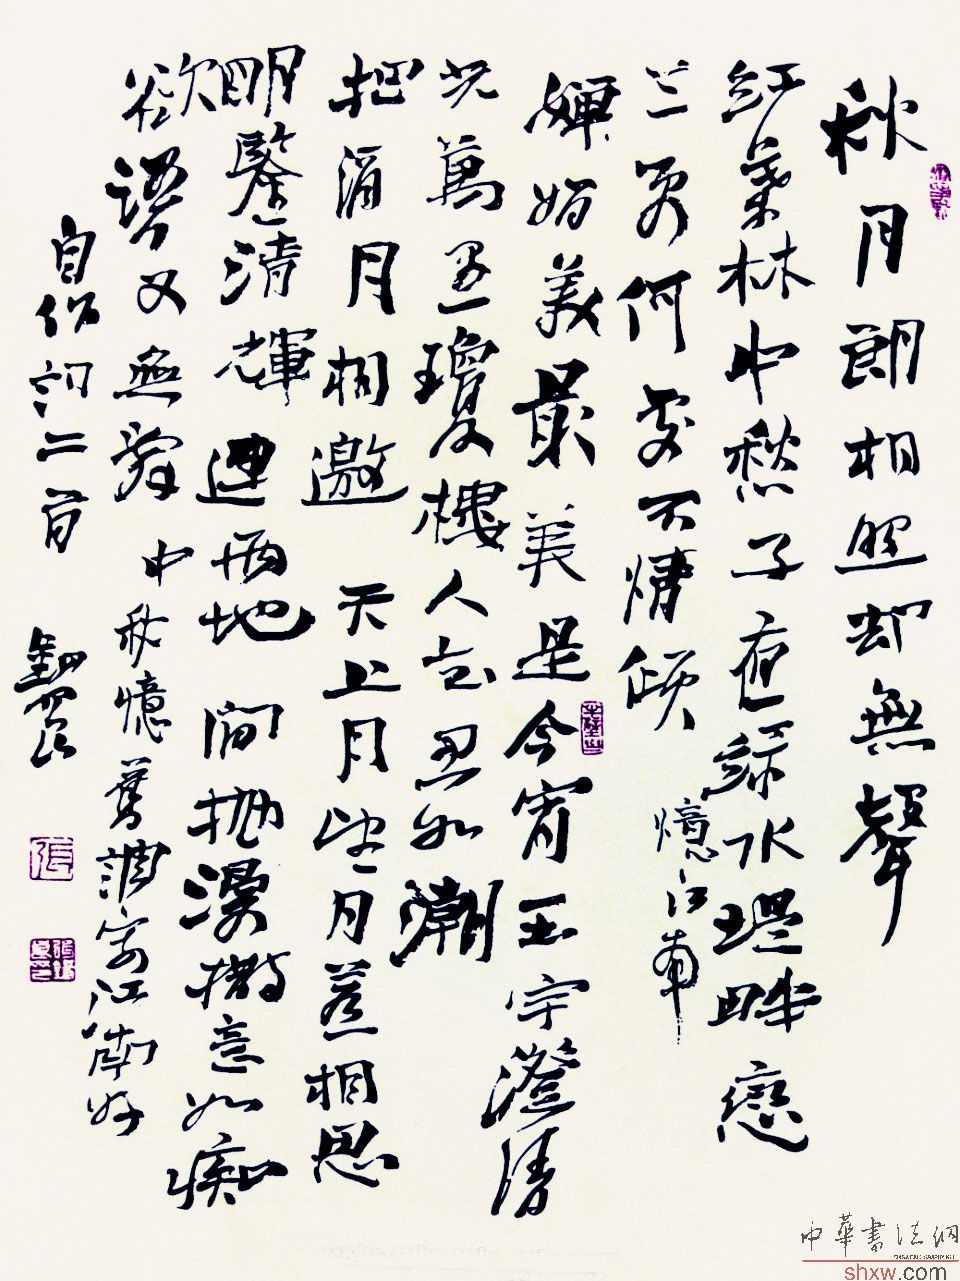 秋月朗相照却無聲
紅葉林中愁子夜綠水堤畔戀
何處不情傾 憶江南
嬋娟美最美是今宵玉宇澄清
光萬里瓊樓人忘思如潮
把酒月相邀 天上月望月惹相思
明鑒清輝連兩地 閒拋漫撒意如痴
欲語又無辭 中秋憶舊調寄江南好
自作詞二首
張
中華書法網
shxw.com